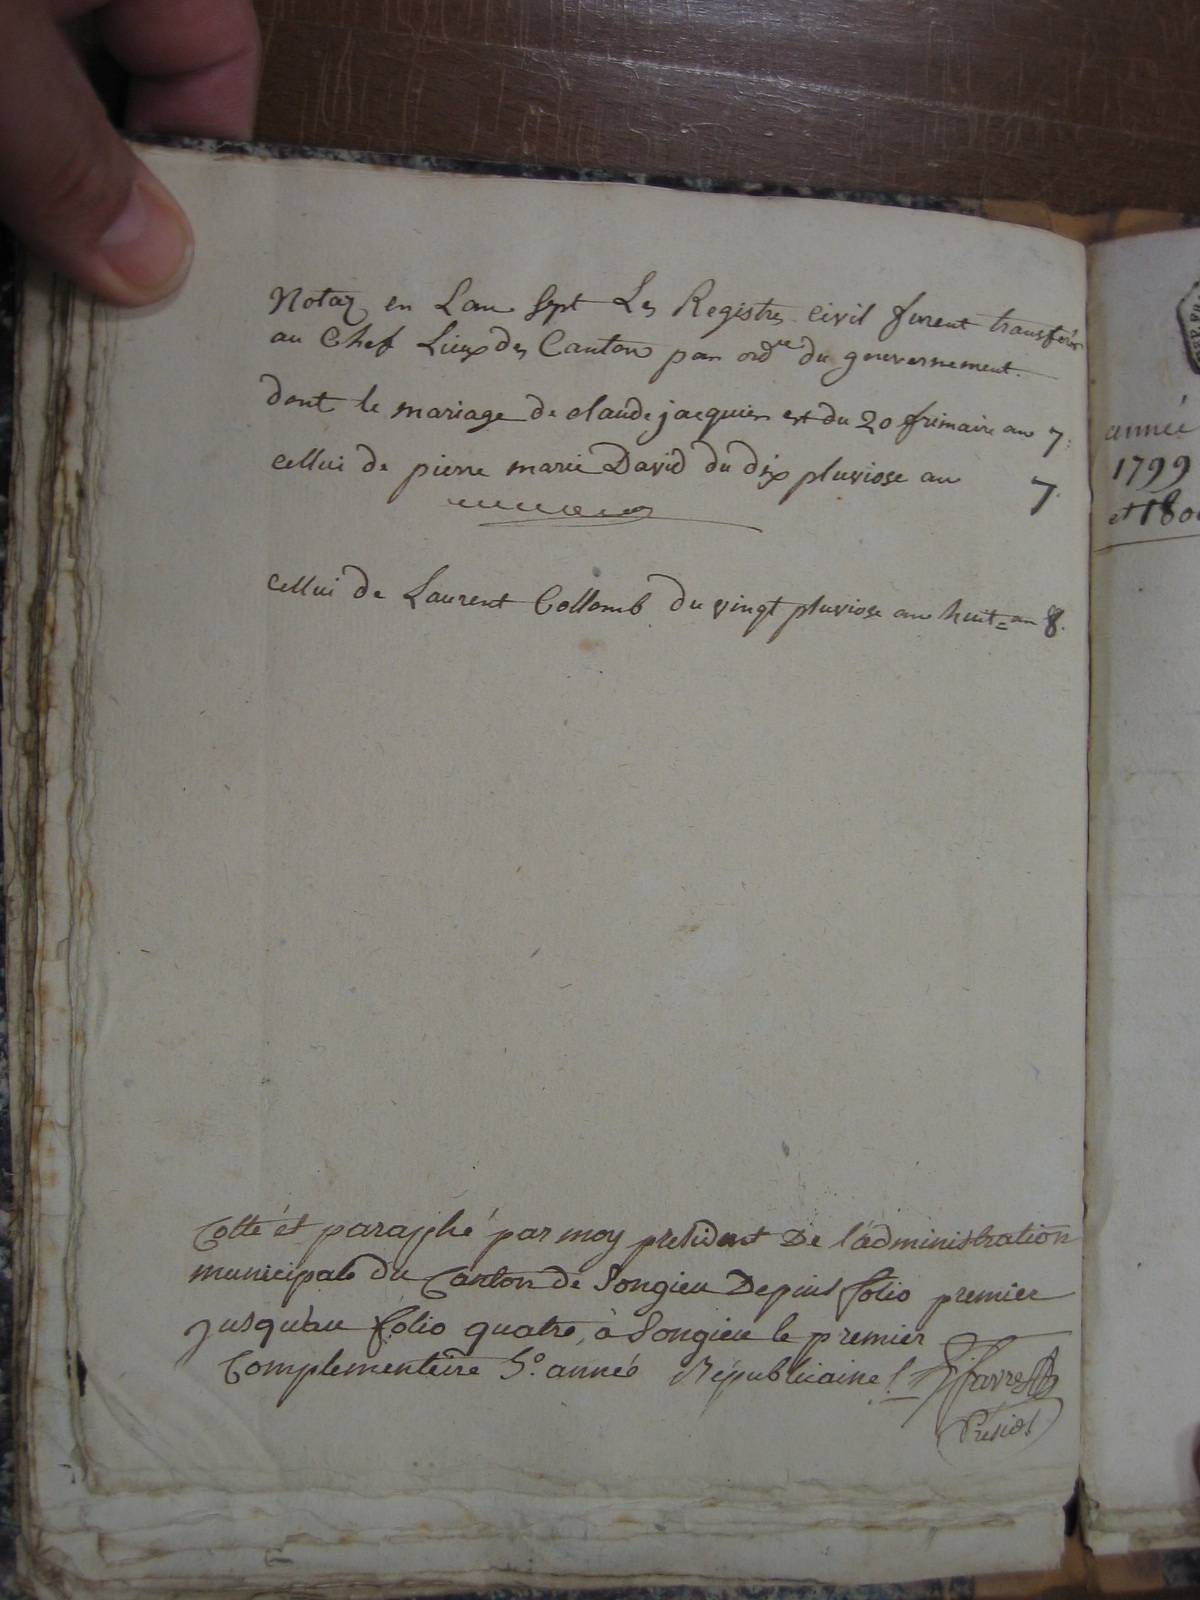 Notaz en Lan Sept Les Registres civil furent transférés
au Chef Lieux des Canton par ord^re du gouvernement.
dont le mariage de claude jacquier est du 20 frimaire an 7:
cellui de pierre marie David du dix pluviose an 7.
cellui de Laurent Collomb du vingt pluviose an huit = an 8.
Cotté et paraphé par moy president De l'administration
municipale du Canton de Songieu Depuis folio premier
jusquau folio quatre, à Songieu le premier
Complementeire 5.° année Républicaine
Favre
Présidt
année
1799
et 180